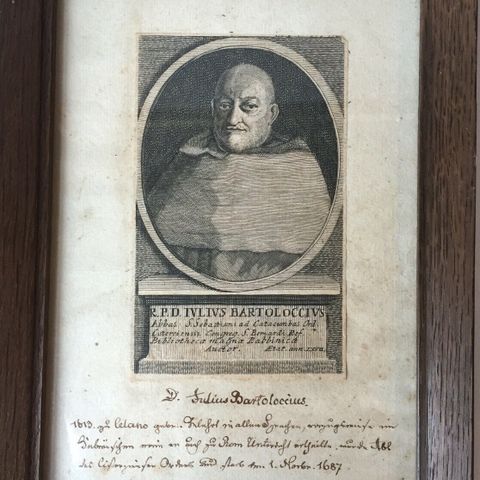 R.P.D. IVLIVS BARTOLOCCIVS
Abbas S. Sebastiani ad Catacumbas Ord.
Cisterciensis Congreg. S. Bernardi Ref.
Bibliothecæ magnæ Rabbinicæ
Auctor. Etat. ann.
D. Julius Bartoloccius.
1613. zu Celano gebor. Gelehrt in allen Sprachen, vorzugsweise im
Hebräischen worin er auch zu Rom Unterricht ertheilte wurde Abt
des Cistercienser Ordens und starb den 1. Novbr. 1687.